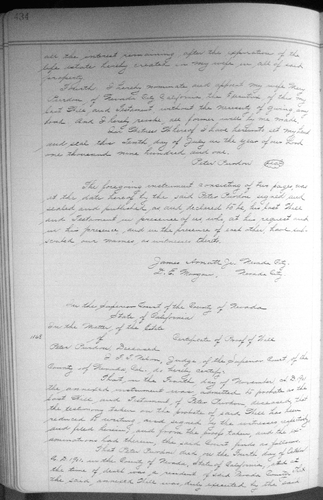 434
all the interest remaining after the expiration of the
life estate hereby created in my wife in all of said
property.
Fourth. I hereby nominate and appoint my wife
Purdon of Nevada City California the of this my
last Will and Testament without the necessity of giving any
bonds. And I hereby revoke all former wills by me made.
In Witness Whereof I have hereunto set my hand
and seal this Tenth day of July in the year of our Lord
one thousand nine hundred and one.
Peter Purdon (Seal)
The foregoing instrument consisting of two pages was
at the date hereof by the said Peter Purdon signed and
sealed and published as and declared to be his last Will
and Testament in presence of us who at his request and
in his presence, and in the presence of each other have sub-
scribed our names as witnesses thereto.
James Jr. Nevada City.
D. E. Morgan Nevada City
In the Superior Court of the County of Nevada
State of California
In the Matter of the Estate
of Certificate of Proof of Will
Peter Purdon, Deceased
I, F. T. Nilon, Judge of the Superior Court of the
County of Nevada, Cal. do hereby certify:
That, on the Fourth day of November A.D. 1901
the annexed instrument was admitted to probate as the
last Will and Testament of Peter Purdon, deceased, and
the testimony taken in the probate of said Will has been
reduced to writing and signed by the witnesses
and filed herein; and from the proofs taken, and the ex-
aminations had therein, the said Court finds as follows:
That Peter Purdon died on the day of
A.D. 1901, in the County of Nevada, State of California; that at
the time of death was a resident of said Nevada County. That
the said annexed Will was duly executed by the said